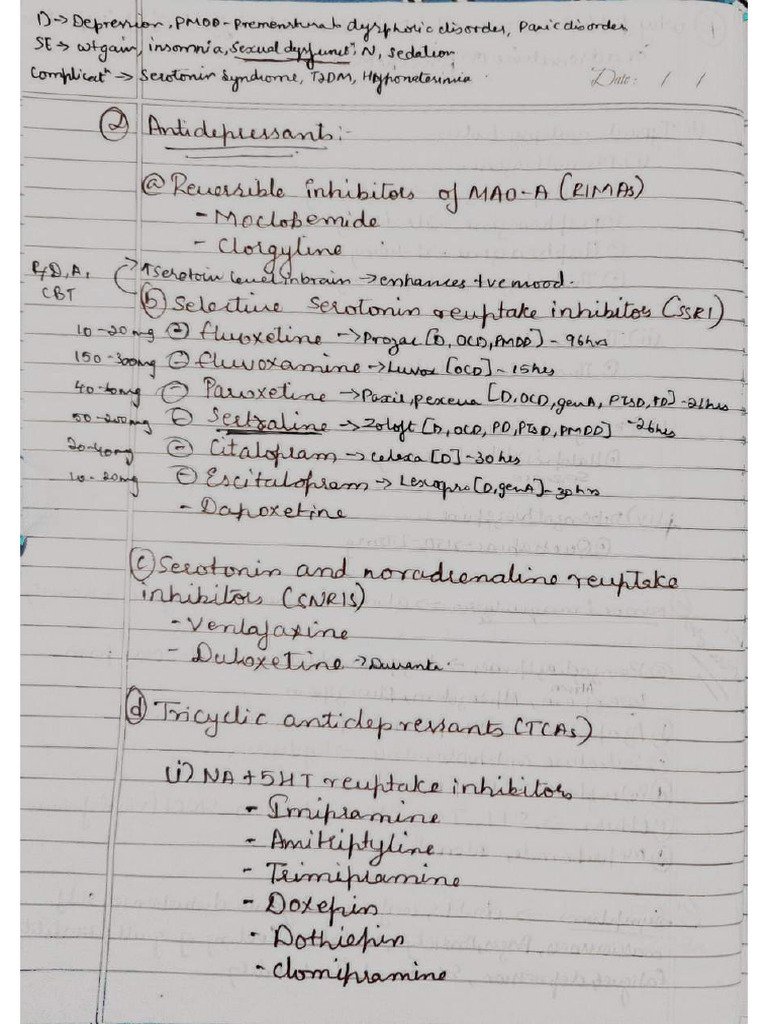 D → Depression, PMDD - Premenstrual dysphoric disorder, Panic disorder
SE → wt gain, insomnia, Sexual dysfunctⁿ, N, sedation
Complicatⁿ → Serotonin Syndrome, T2DM, Hyponaterimia
Date: / /
② Antidepressants:-
ⓐ Reversible inhibitors of MAO-A (RIMAs)
- Moclobemide
- Clorgyline
P, D, A, CBT
↑ serotoin level in brain → enhances +ve mood.
ⓑ Selective Serotonin reuptake inhibitors (SSRI)
10-20mg - fluoxetine → Prozac [D, OCD, PMDD] - 96hrs
150-300mg - fluvoxamine → Luvox [OCD] - 15hrs
40-60mg - Paroxetine → Paxil, pexeva [D, OCD, genA, PTSD, PD] - 21hrs
50-200mg - Sertraline → Zoloft [D, OCD, PD, PTSD, PMDD] - 26hrs
20-40mg - Citalopram → celexa [D] - 30hrs
10-20mg - Escitalopram → Lexapro [D, genA] - 30hrs
- Dapoxetine
ⓒ Serotonin and noradrenaline reuptake
inhibitors (SNRIS)
- Venlafaxine
- Duloxetine →
ⓓ Tricyclic antidepressants (TCAs)
(i) NA + 5HT reuptake inhibitors
- Imipramine
- Amitriptyline
- Trimipramine
- Doxepin
- Dothiepin
- Clomipramine